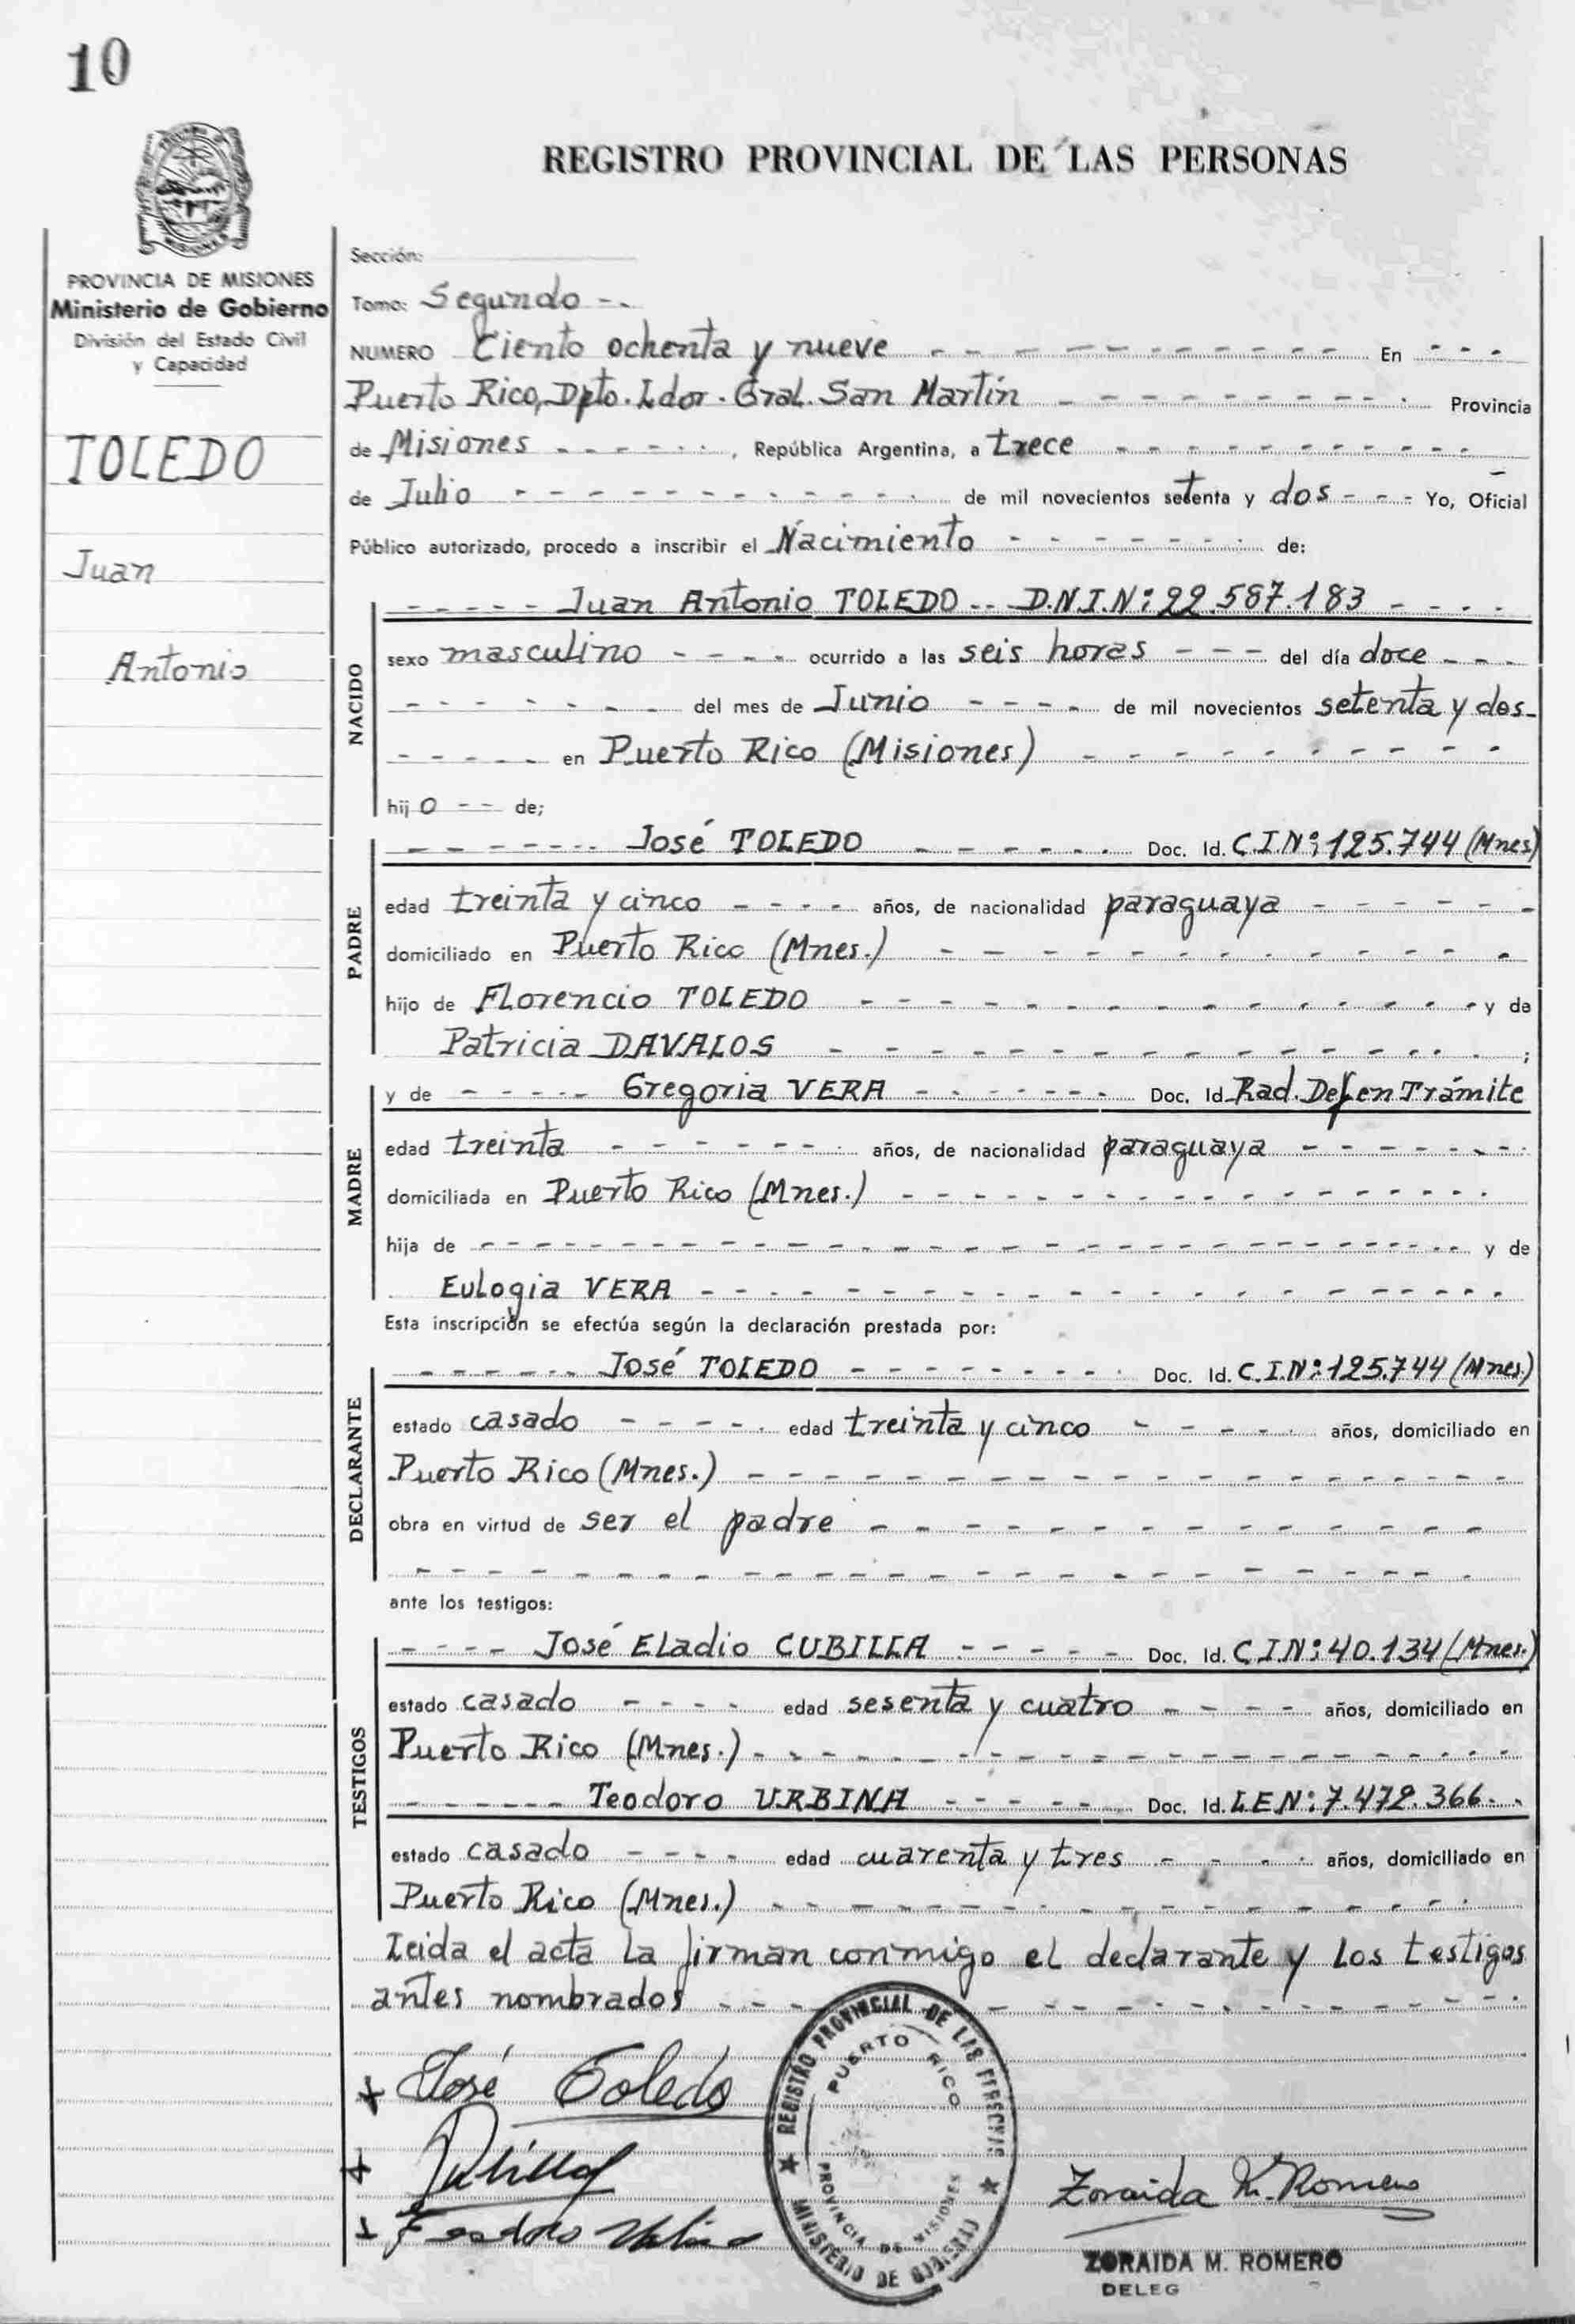 10
REGISTRO PROVINCIAL DE LAS PERSONAS
MISIONES
PROVINCIA DE MISIONES
Ministerio de Gobierno
División del Estado Civil
y Capacidad
TOLEDO
Juan
Antonio
Sección:
Tomo: Segundo
NUMERO Ciento ochenta y nueve En
Puerto Rico, Dpto. Ldor. Gral. San Martín Provincia
de Misiones, República Argentina, a trece
de Julio de mil novecientos setenta y dos Yo, Oficial
Público autorizado, procedo a inscribir el Nacimiento de:
NACIDO
Juan Antonio TOLEDO -- D.N.I.Nº: 22.587.183
sexo masculino ocurrido a las seis horas del día doce
del mes de Junio de mil novecientos setenta y dos
en Puerto Rico (Misiones)
hijo de;
PADRE
José TOLEDO Doc. Id. C.I.Nº: 125.744 (Mnes)
edad treinta y cinco años, de nacionalidad paraguaya
domiciliado en Puerto Rico (Mnes.)
hijo de Florencio TOLEDO y de
Patricia DAVALOS ;
MADRE
y de Gregoria VERA Doc. Id. Rad. Def. en Trámite
edad treinta años, de nacionalidad paraguaya
domiciliada en Puerto Rico (Mnes.)
hija de y de
Eulogia VERA
Esta inscripción se efectúa según la declaración prestada por:
DECLARANTE
José TOLEDO Doc. Id. C.I.Nº: 125.744 (Mnes.)
estado casado edad treinta y cinco años, domiciliado en
Puerto Rico (Mnes.)
obra en virtud de ser el padre
ante los testigos:
TESTIGOS
José Eladio CUBILLA Doc. Id. C.I.Nº: 40.134 (Mnes.)
estado casado edad sesenta y cuatro años, domiciliado en
Puerto Rico (Mnes.)
Teodoro URBINA Doc. Id. L.E.Nº: 7.472.366
estado casado edad cuarenta y tres años, domiciliado en
Puerto Rico (Mnes.)
Leida el acta la firman conmigo el declarante y los testigos
antes nombrados
José Toledo
REGISTRO PROVINCIAL DE LAS PERSONAS
PUERTO RICO
PROVINCIA DE MISIONES
MINISTERIO DE GOBIERNO
Zoraida M. Romero
ZORAIDA M. ROMERO
DELEG